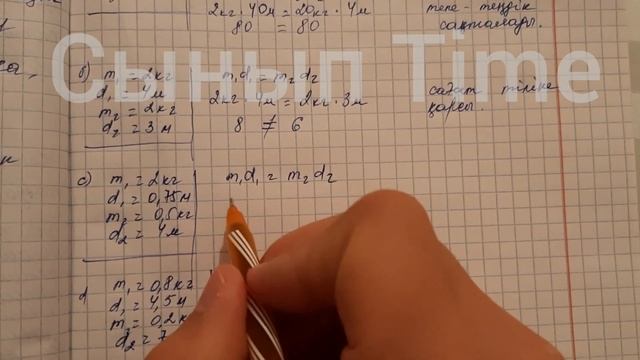 2кг · 40м = 20кг · 4м
80 = 80
тепе-теңдік
сақталады.
Сынып Time
б) m₁ = 2кг
d₁ = 4м
m₂ = 2кг
d₂ = 3м
m₁d₁ = m₂d₂
2кг · 4м = 2кг · 3м
8 ≠ 6
сағат тіліне
қарсы.
с) m₁ = 2кг
d₁ = 0,75м
m₂ = 0,5кг
d₂ = 4м
m₁d₁ = m₂d₂
d m₁ = 0,8кг
d₁ = 4,5м
m₂ = 0,2к
d₂ = 7